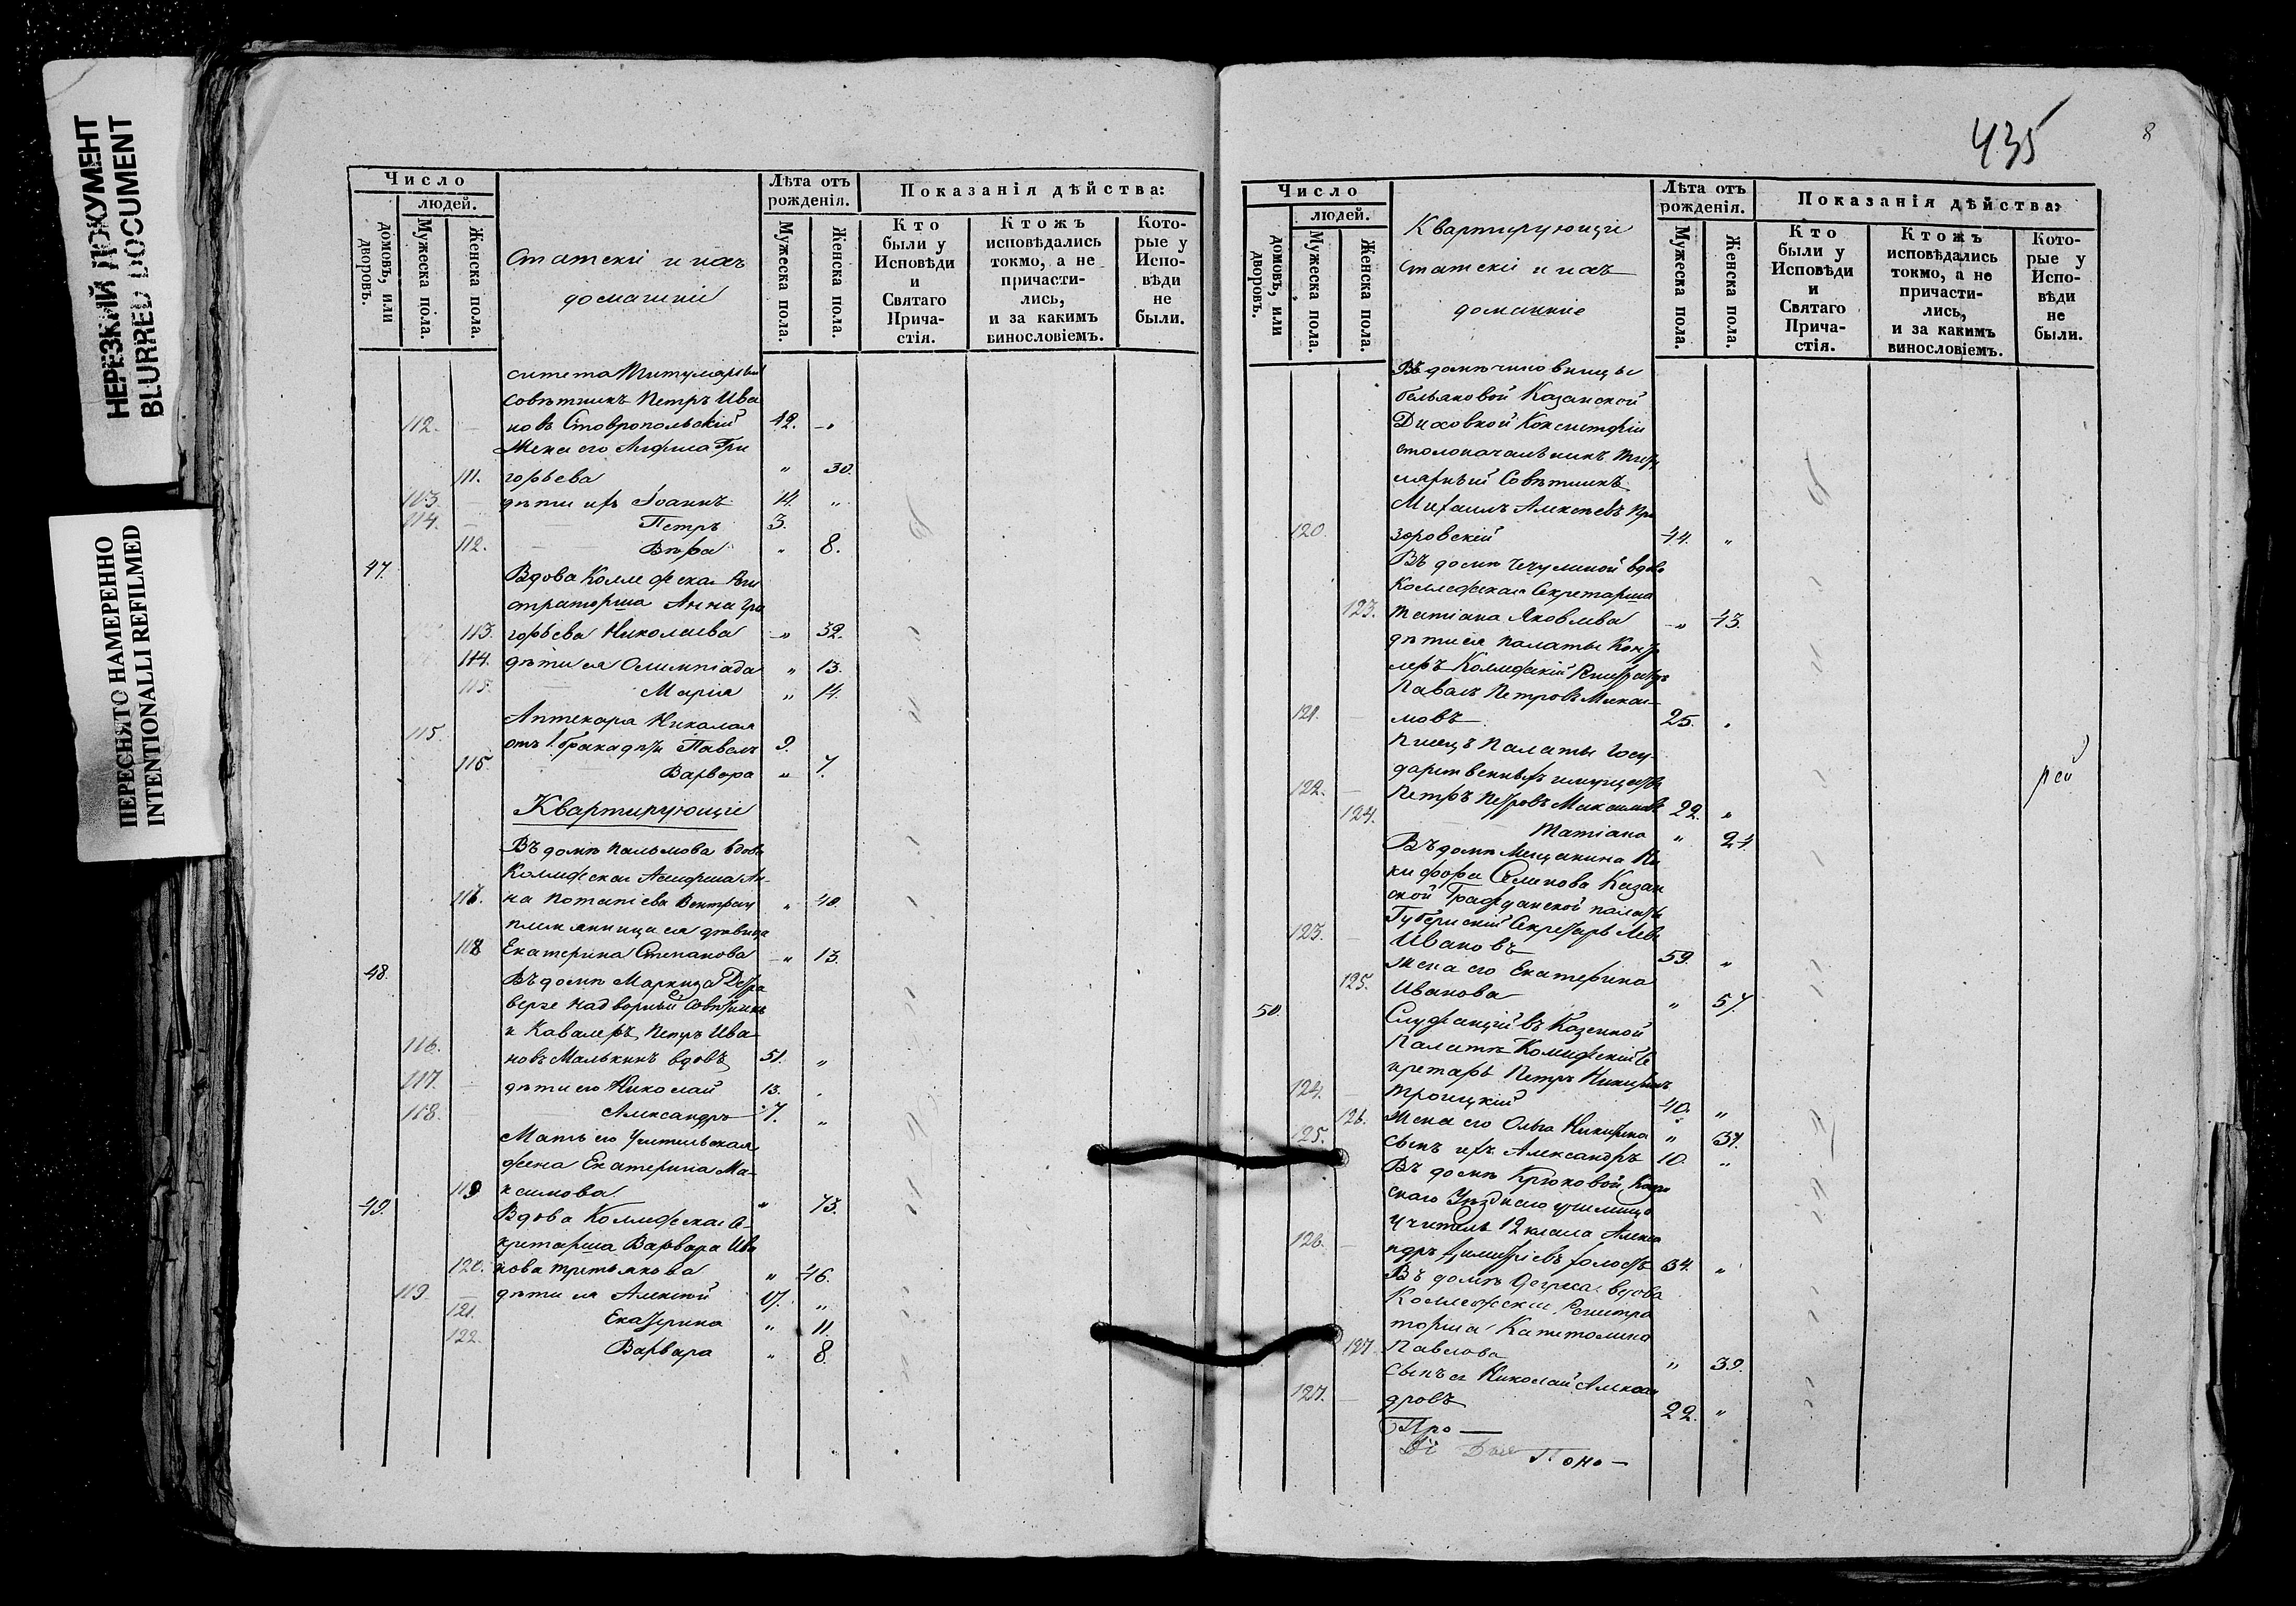 НЕРЕЗКИЙ ДОКУМЕНТ
BLURRED DOCUMENT
ПЕРЕСНЯТО НАМЕРЕННО
INTENTIONALLI REFILMED
Число
людей.
домовъ, или дворовъ.
Мужеска пола.
Женска пола.
Статскіе и ихъ
домашніе
Лѣта отъ рожденія.
Мужеска пола.
Женска пола.
Показанія дѣйства:
Кто были у Исповѣди и Святаго Прича-стія.
Ктожъ исповѣдались токмо, а не причасти-лись, и за какимъ винословіемъ.
Кото-рые у Испо-вѣди не были.
ситета Титулярный
Совѣтникъ Петръ Ива
112. новъ Ставропольскій 42. "
Жена его Анфиса Гри
111. горьева " 30.
113. дѣти ихъ Іоаннъ 14. "
114. Петръ 3.
112. Вѣра " 8.
47. Вдова Коллежская Реги
страторша Анна Гри
113. горьева Николаева " 32.
114. дѣти ея Олимпіада " 13.
115. Марія " 14.
Аптекаря Николая
115. отъ 1. брака дѣти Павелъ 9.
116. Варвара " 7.
Квартирующіе
Въ домѣ Пальмова вдова
Коллежская Ан-
117. на Потапіева " 40.
племянница ея дѣвица
118 Екатерина Степанова " 13.
48. Въ домѣ Маркиза
верзе Надворный Совѣтникъ
и Кавалеръ Петръ Ива
116. новъ Малькинъ вдовъ 51. "
117. дѣти его Николай 13. "
118. Александръ 7. "
Мать его Учительская
жена Екатерина Ма-
119 ксимова " 73.
49. Вдова Коллежская Се-
кретарша Варвара Ива
120. нова Третьякова " 46.
119. дѣти ея Алексѣй 17. "
121. Екатерина " 11.
122. Варвара " 8.
435
8
Число
людей.
домовъ, или дворовъ.
Мужеска пола.
Женска пола.
Квартирующіе
Статскіе и ихъ
домашніе
Лѣта отъ рожденія.
Мужеска пола.
Женска пола.
Показанія дѣйства:
Кто были у Исповѣди и Святаго Прича-стія.
Ктожъ исповѣдались токмо, а не причасти-лись, и за какимъ винословіемъ.
Кото-рые у Испо-вѣди не были.
Въ домѣ чиновницы
Бѣльяковой Казанской
Духовной Консисторіи
столоначальникъ Титу
лярный Совѣтникъ
Михаилъ Алексѣевъ Про
120. зоровскій 44. "
Въ домѣ вдова
Коллежская Секретарша
123. Татіана Яковлева " 43.
дѣти ея Палаты Контро
леръ Коллежскій Регистраторъ
Павелъ Петровъ Макси
121. мовъ 25. "
Писецъ Палаты Госу
дарственныхъ имуществъ
122. Петръ Петровъ Максимовъ 22. "
124. Татіана " 24.
Въ домѣ Мещанина Ни
кифора Семенова Казан
ской Гражданской палаты
Губернскій Секретарь Левъ
123. Ивановъ 59. "
жена его Екатерина
125. Иванова " 57.
50. Служащій въ Казенной
Палатѣ Коллежскій Се
кретарь Петръ Никитинъ
124. Троицкій 40. "
126. жена его Ольга Никитина " 37.
125. сынъ ихъ Александръ 10. "
Въ домѣ Крюковой Казан
скаго Уѣзднаго училища
учитель 12 класа Алекса
126. ндръ Димитріевъ 34. "
Въ домѣ вдова
Коллежская Регистра
торша Капитолина
127 Павлова " 39.
сынъ ея Николай Алексан
127. дровъ 22. "
Про—
Поно—